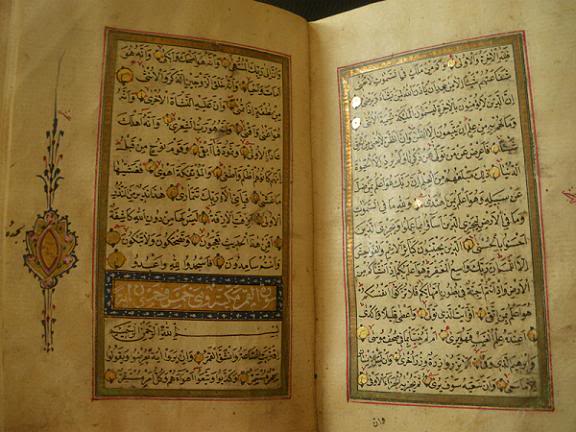 فَلِلَّهِ الْاٰخِرَةُ وَالْاُولٰى وَكَمْ مِنْ مَلَكٍ فِي السَّمٰوَاتِ لَا تُغْنِي
شَفَاعَتُهُمْ شَيْئًا اِلَّا مِنْ بَعْدِ اَنْ يَأْذَنَ اللهُ لِمَنْ يَشَاءُ وَيَرْضٰى
اِنَّ الَّذِينَ لَا يُؤْمِنُونَ بِالْاٰخِرَةِ لَيُسَمُّونَ الْمَلٰئِكَةَ تَسْمِيَةَ الْاُنْثٰى
وَمَا لَهُمْ بِهِ مِنْ عِلْمٍ اِنْ يَتَّبِعُونَ اِلَّا الظَّنَّ وَاِنَّ الظَّنَّ لَا يُغْنِي مِنَ الْحَقِّ
شَيْئًا فَاَعْرِضْ عَنْ مَنْ تَوَلّٰى عَنْ ذِكْرِنَا وَلَمْ يُرِدْ اِلَّا الْحَيٰوةَ
الدُّنْيَا ذٰلِكَ مَبْلَغُهُمْ مِنَ الْعِلْمِ اِنَّ رَبَّكَ هُوَ اَعْلَمُ بِمَنْ ضَلَّ
عَنْ سَبِيلِهِ وَهُوَ اَعْلَمُ بِمَنِ اهْتَدٰى وَلِلّٰهِ مَا فِي السَّمٰوَاتِ
وَمَا فِي الْاَرْضِ لِيَجْزِيَ الَّذِينَ اَسَاؤُا بِمَا عَمِلُوا وَيَجْزِيَ الَّذِينَ
اَحْسَنُوا بِالْحُسْنٰى الَّذِينَ يَجْتَنِبُونَ كَبَائِرَ الْاِثْمِ وَالْفَوَاحِشَ
اِلَّا اللَّمَمَ اِنَّ رَبَّكَ وَاسِعُ الْمَغْفِرَةِ هُوَ اَعْلَمُ بِكُمْ اِذْ اَنْشَاَكُمْ مِنَ
الْاَرْضِ وَاِذْ اَنْتُمْ اَجِنَّةٌ فِي بُطُونِ اُمَّهَاتِكُمْ فَلَا تُزَكُّوا اَنْفُسَكُمْ
هُوَ اَعْلَمُ بِمَنِ اتَّقٰى اَفَرَاَيْتَ الَّذِي تَوَلّٰى وَاَعْطٰى قَلِيلًا وَاَكْدٰى
اَعِنْدَهُ عِلْمُ الْغَيْبِ فَهُوَ يَرٰى اَمْ لَمْ يُنَبَّاْ بِمَا فِي صُحُفِ مُوسٰى
وَاِبْرٰهِيمَ الَّذِي وَفّٰى اَلَّا تَزِرُ وَازِرَةٌ وِزْرَ اُخْرٰى وَاَنْ لَيْسَ لِلْاِنْسَانِ
اِلَّا مَا سَعٰى وَاَنَّ سَعْيَهُ سَوْفَ يُرٰى ثُمَّ يُجْزٰيهُ الْجَزَاءَ الْاَوْفٰى
وان
وَاَنَّ اِلٰى رَبِّكَ الْمُنْتَهٰى وَاَنَّهُ هُوَ اَضْحَكَ وَاَبْكٰى وَاَنَّهُ هُوَ
اَمَاتَ وَاَحْيَا وَاَنَّهُ خَلَقَ الزَّوْجَيْنِ الذَّكَرَ وَالْاُنْثٰى
مِنْ نُطْفَةٍ اِذَا تُمْنٰى وَاَنَّ عَلَيْهِ النَّشْاَةَ الْاُخْرٰى وَاَنَّهُ
هُوَ اَغْنٰى وَاَقْنٰى وَاَنَّهُ هُوَ رَبُّ الشِّعْرٰى وَاَنَّهُ اَهْلَكَ
عَادًا الْاُولٰى وَثَمُودَ فَمَا اَبْقٰى وَقَوْمَ نُوحٍ مِنْ قَبْلُ
اِنَّهُمْ كَانُوا هُمْ اَظْلَمَ وَاَطْغٰى وَالْمُؤْتَفِكَةَ اَهْوٰى فَغَشّٰيهَا
مَا غَشّٰى فَبِاَيِّ اٰلَاءِ رَبِّكَ تَتَمَارٰى هٰذَا نَذِيرٌ مِنَ النُّذُرِ
الْاُولٰى اَزِفَتِ الْاٰزِفَةُ لَيْسَ لَهَا مِنْ دُونِ اللهِ كَاشِفَةٌ
اَفَمِنْ هٰذَا الْحَدِيثِ تَعْجَبُونَ وَتَضْحَكُونَ وَلَا تَبْكُونَ
وَاَنْتُمْ سَامِدُونَ فَاسْجُدُوا لِلّٰهِ وَاعْبُدُوا
بِسْمِ اللهِ الرَّحْمٰنِ الرَّحِيمِ
اِقْتَرَبَتِ السَّاعَةُ وَانْشَقَّ الْقَمَرُ وَاِنْ يَرَوْا اٰيَةً يُعْرِضُوا وَيَقُولُوا
سِحْرٌ مُسْتَمِرٌّ وَكَذَّبُوا وَاتَّبَعُوا اَهْوَاءَهُمْ وَكُلُّ اَمْرٍ مُسْتَقِرٌّ